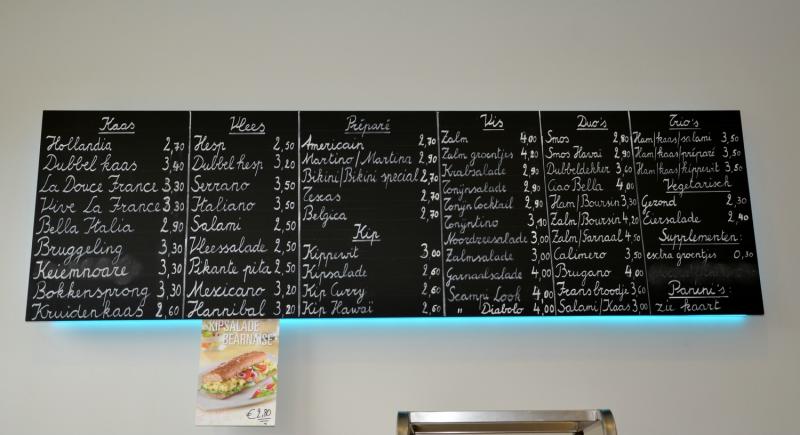 Kaas
Hollandia 2,70
Dubbel kaas 3,40
La Douce France 3,30
Vive La France 3,30
Bella Italia 2,90
Bruggeling 3,30
Keiemnoare 3,30
Bokkensprong 3,30
Kruidenkaas 2,60
Vlees
Hesp 2,50
Dubbel hesp 3,20
Serrano 3,50
Italiano 3,50
Salami 2,50
Vleessalade 2,50
Pikante pita 2,50
Mexicano 3,20
Hannibal 3,20
Préparé
Americain 2,70
Martino/Martina 2,90
Bikini/Bikini special 2,70
Texas 2,70
Belgica 2,70
Kip
Kippewit 3,00
Kipsalade 2,60
Kip Curry 2,60
Kip Hawaï 2,60
Vis
Zalm 4,00
Zalm groentjes 4,20
Krabsalade 2,90
Tonijnsalade 2,90
Tonijn Cocktail 2,90
Tonyntino 3,10
Noordzeesalade 3,00
Zalmsalade 3,00
Garnaalsalade 4,00
Scampi Look 4,00
" Diabolo 4,00
Duo's
Smos 2,80
Smos Havai 2,90
Dubbeldekker 3,60
Ciao Bella 4,00
Ham/Boursin 3,30
Zalm/Boursin 4,20
Zalm/Garnaal 4,50
Calimero 3,50
Brugano 4,00
Frans broodje 3,60
Salami/Kaas 3,00
Trio's
Ham/kaas/salami 3,50
Ham/kaas/préparé 3,50
Ham/kaas/kippewit 3,50
Vegetarisch
Gezond 2,30
Eiersalade 2,40
Supplementen:
extra groentjes 0,30
Panini's:
zie kaart
KIPSALADE
BEARNAISE
€ 2,80